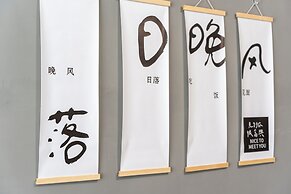 晚 风
落
日
日落
晚
吃 饭
风
NICE TO
MEET YOU